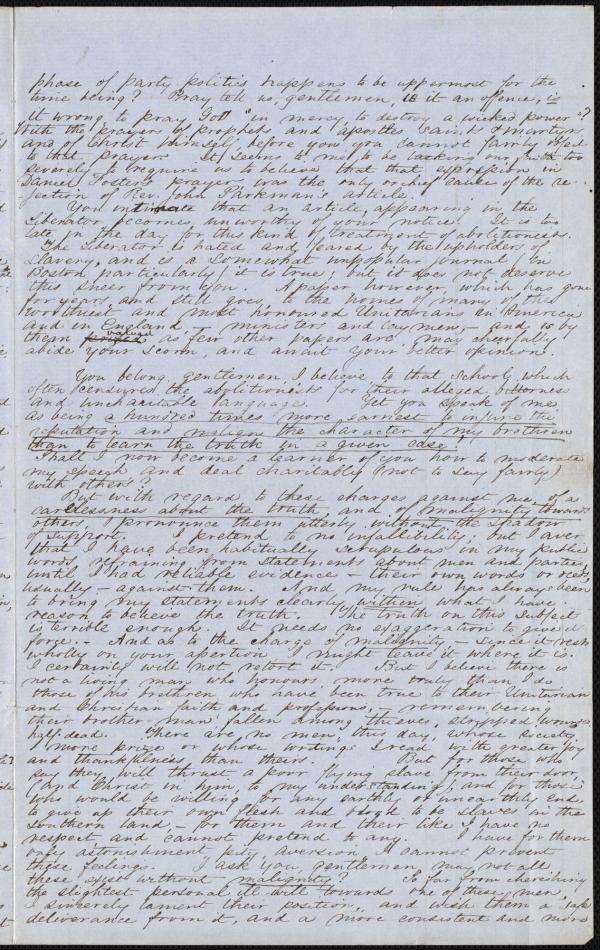 phase of party politics happens to be uppermost for the
time being? Pray tell us, gentlemen, is it an offence, is
it wrong to pray God "in mercy, to destroy a wicked power"?
With the prayers of prophets and apostles saints & martyrs
and of Christ himself, before you you cannot fairly object
to that prayer. It seems to me, to be tasking our faith too
severely to require us to believe that that expression in
Daniel Foster's prayer, was the only or chief cause of the re-
jection of Rev. John Parkman's article.
You intimate that any article, appearing in the
Liberator becomes unworthy of your notice. It is too
late in the day for this kind of treatment of abolitionists.
The Liberator is hated and feared by the upholders of
slavery, and is a somewhat unpopular journal (in
Boston particularly) it is true; but it does not deserve
this sneer from you. A paper however, which has gone
for years, and still goes, to the homes of many of the
worthiest and most honoured Unitarians in America
and in England, - ministers and laymen, - and is by
them valued as few other papers are, may cheerfully
abide your scorn, and await your better opinion.
You belong, gentlemen, I believe to that School, which
often censures the abolitionists for their alleged bitterness
and uncharitable language. Yet you speak of me
as being a hundred times more earnest to injure the
reputation and malign the character of my brethren
than to learn the truth in a given case!
Shall I now become a learner of you how to moderate
my speech and deal charitably (not to say fairly)
with others?
But with regard to these charges against me, of a
carelessness about the truth, and of malignity towards
others, I pronounce them utterly without the shadow
of support. I pretend to no infallibility; but I aver
that I have been habitually scrupulous in my public
words, refraining from statements about men and parties,
until I had reliable evidence - their own words or deeds,
usually - against them. And my rule has always been
to bring my statements clearly within what I have
reason to believe the truth. The truth on this subject
is terrible enough. It needs no exaggeration to give it
force. And as to the charge of malignity - since it rests
wholly on your assertion I might leave it where it is.
I certainly will not retort it. But I believe there is
not a living man who honours more truly than I do
those of his brethren who have been true to their Unitarian
and Christian faith and professions, - remembering
their brother-man fallen among thieves, stripped, wounded
half-dead. There are no men, this day, whose society
I more prize or whose writings I read with greater joy
and thankfulness than theirs. But for those who
say they will thrust a poor flying slave from their door,
(and Christ in him, to my understanding) and for those
who would be willing for any earthly or unearthly end
to give up their own flesh and blood to be slaves in the
Southern land, - for them and their like I have no
respect and cannot pretend to any. I have for them
only astonishment pity aversion. I cannot prevent
these feelings. I ask you gentlemen, may not all
these exist without malignity? So far from cherishing
the slightest personal ill-will toward one of these men,
I sincerely lament their position, and wish them a safe
deliverance from it, and a more consistent and more